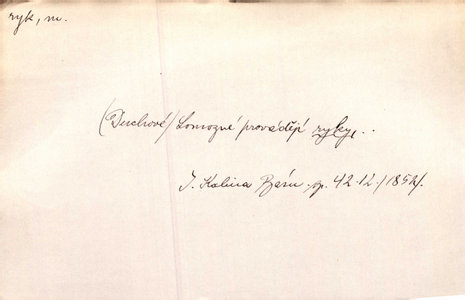 ryk, m.
(Duchové) Lomozné provádějí ryky, ..
J. Kalina Básn. sp. 42.12./1852/.